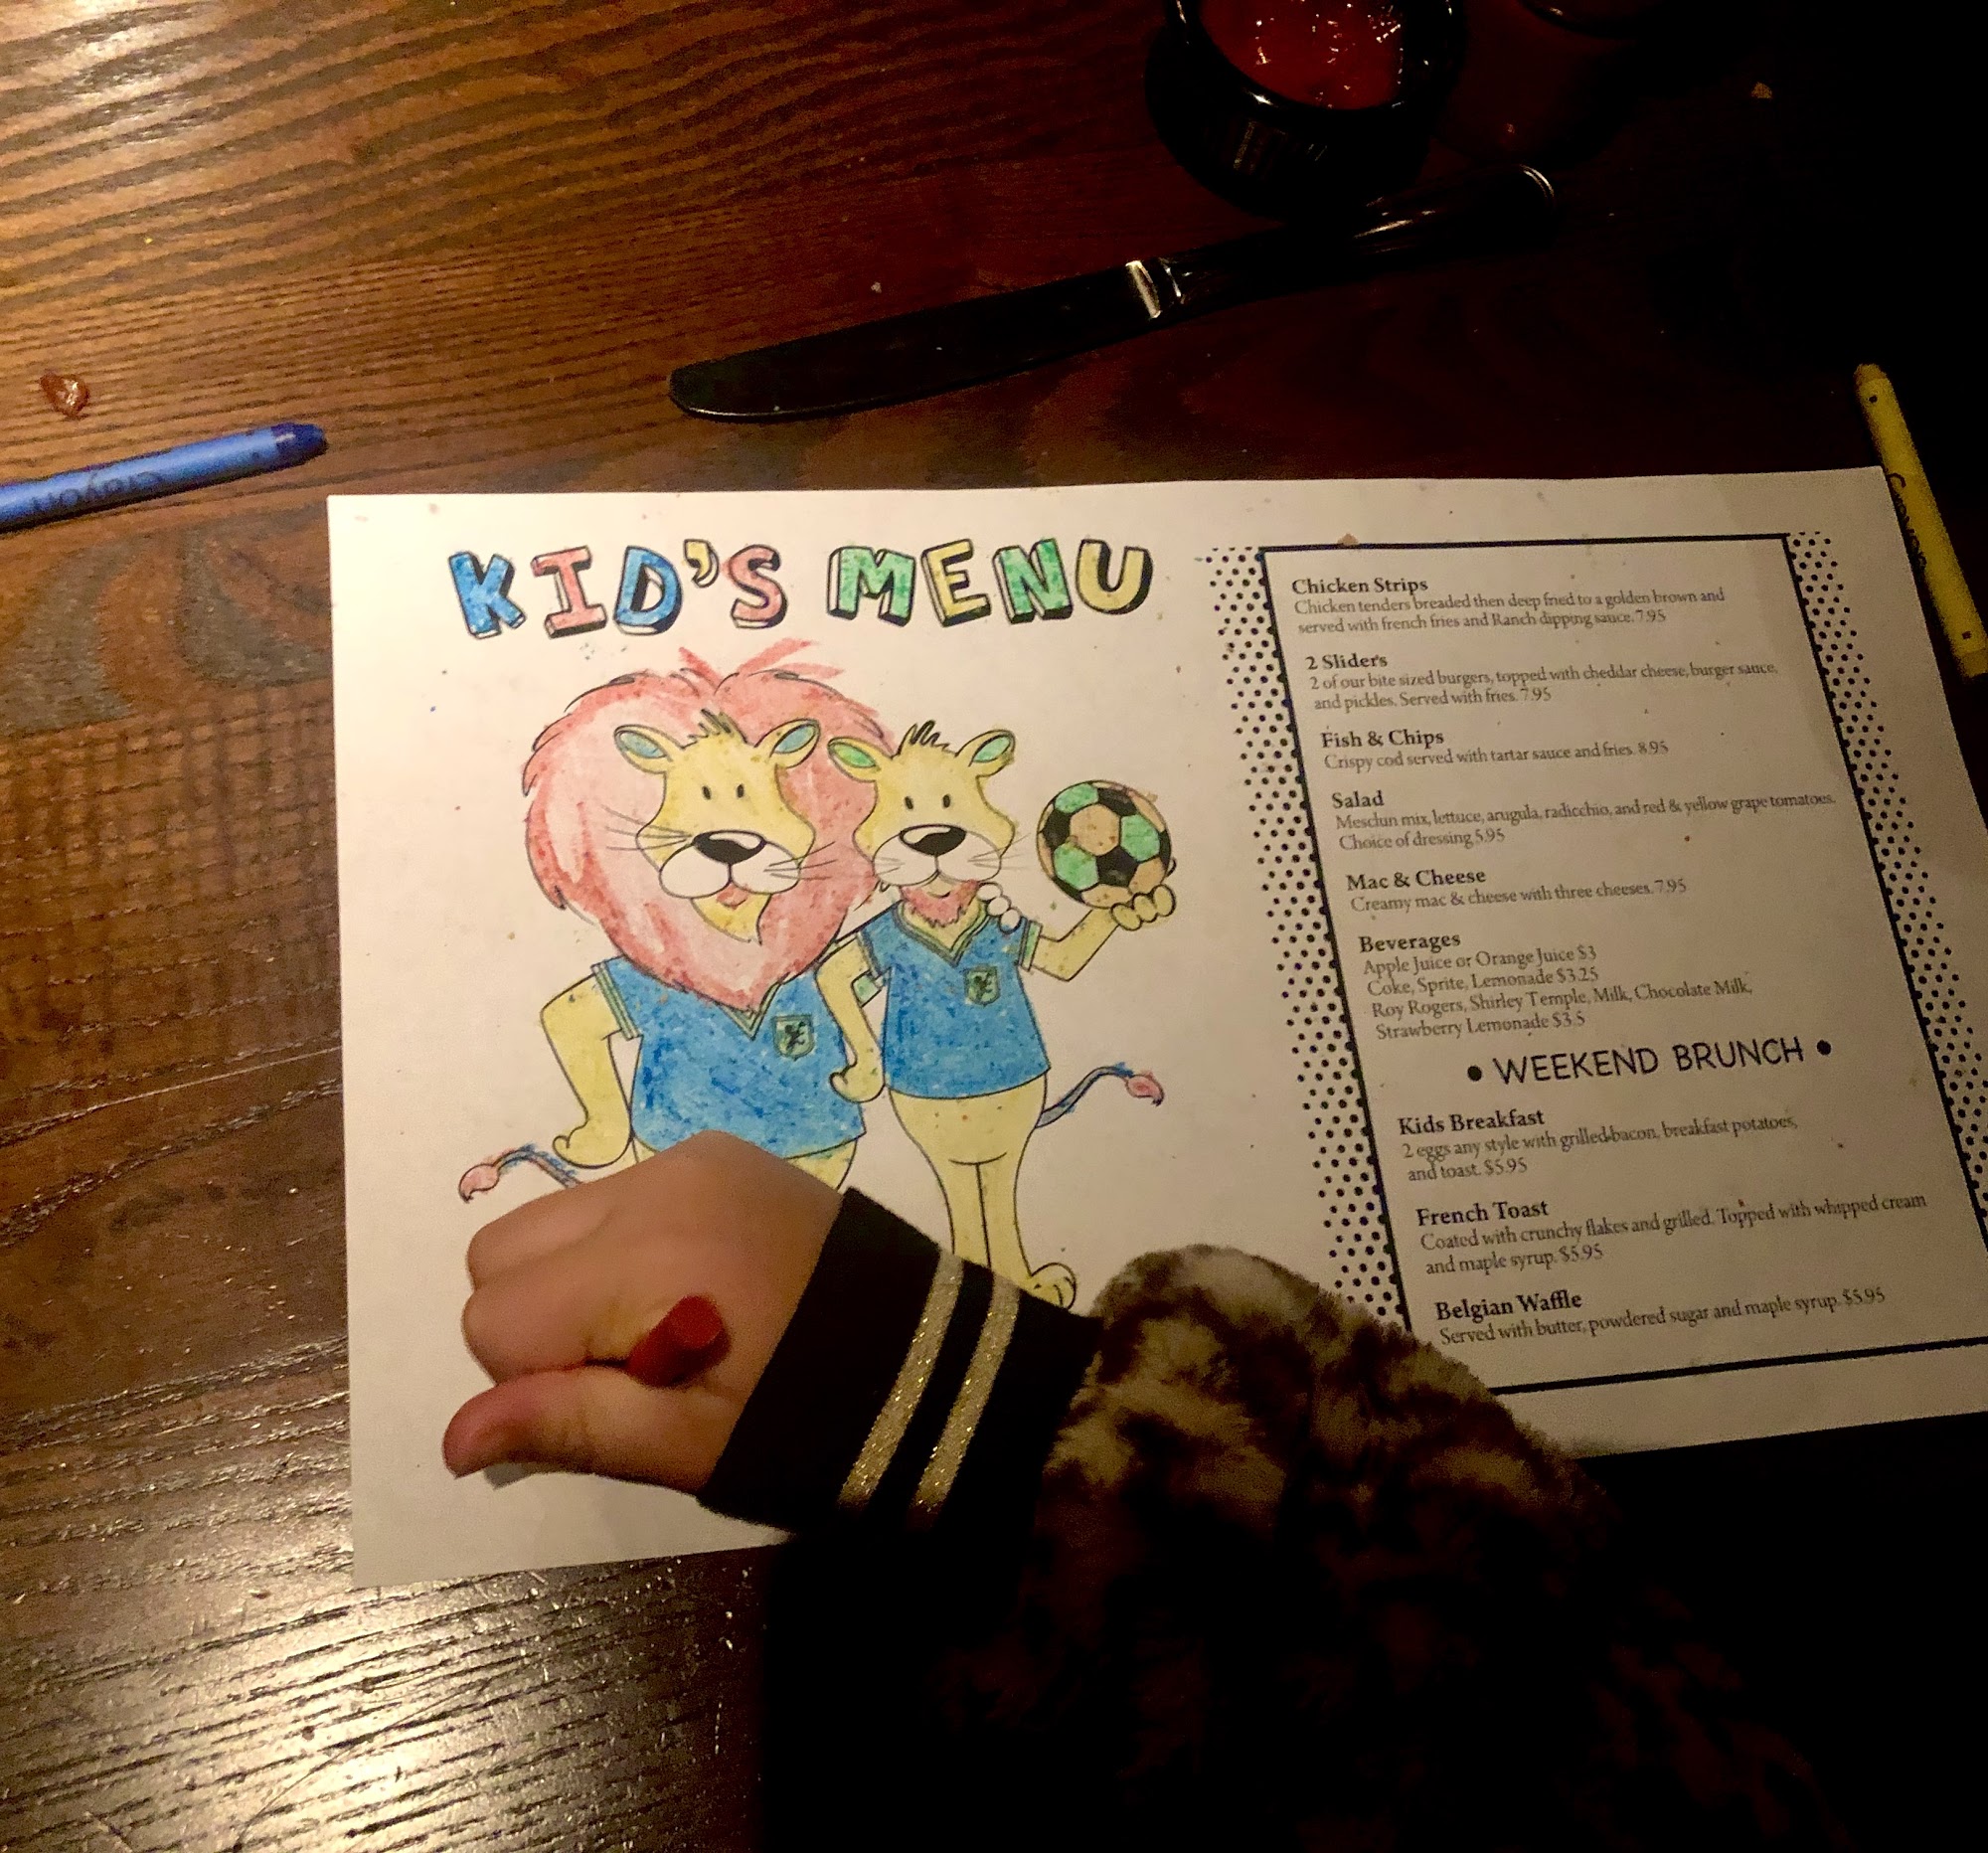 KID'S MENU
Chicken Strips
Chicken tenders breaded then deep fried to a golden brown and
served with french fries and Ranch dipping sauce. 7.95
2 Sliders
2 of our bite sized burgers, topped with cheddar cheese, burger sauce,
and pickles. Served with fries. 7.95
Fish & Chips
Crispy cod served with tartar sauce and fries. 8.95
Salad
Mesclun mix, lettuce, arugula, radicchio, and red & yellow grape tomatoes.
Choice of dressing 5.95
Mac & Cheese
Creamy mac & cheese with three cheeses. 7.95
Beverages
Apple Juice or Orange Juice $3
Coke, Sprite, Lemonade $3.25
Roy Rogers, Shirley Temple, Milk, Chocolate Milk,
Strawberry Lemonade $3.5
• WEEKEND BRUNCH •
Kids Breakfast
2 eggs any style with grilled bacon, breakfast potatoes,
and toast. $5.95
French Toast
Coated with crunchy flakes and grilled. Topped with whipped cream
and maple syrup. $5.95
Belgian Waffle
Served with butter, powdered sugar and maple syrup. $5.95
Crayon
Crayon